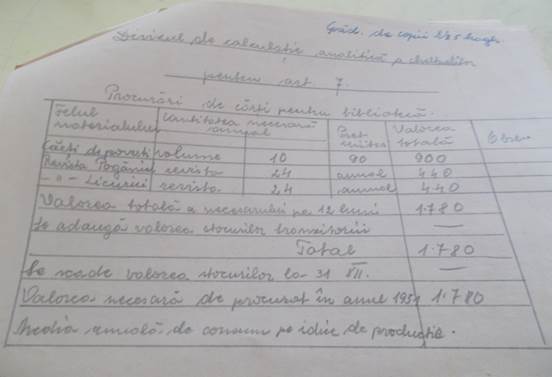 Grăd. de copii
Devizul de calculație analitică a cheltuelilor
pentru art. 7
Procurări de cărți pentru bibliotecă.
Felul materialului Cantitatea necesară anual Preț unitar Valorea totală Observ
Cărți de povești volume 10 90 900
Revista Pogonici revista 24 anual 440
- " - Licurici revista 24 anual 440
Valorea totală a necesarului pe 12 luni 1.780
Se adaugă valorea stocurilor tranzitorii —
Total 1.780
Se scade valorea stocurilor la 31 XII. —
Valorea necesară de procurat în anul 1951 1.780
Media anuală de consum pe idice de producție.